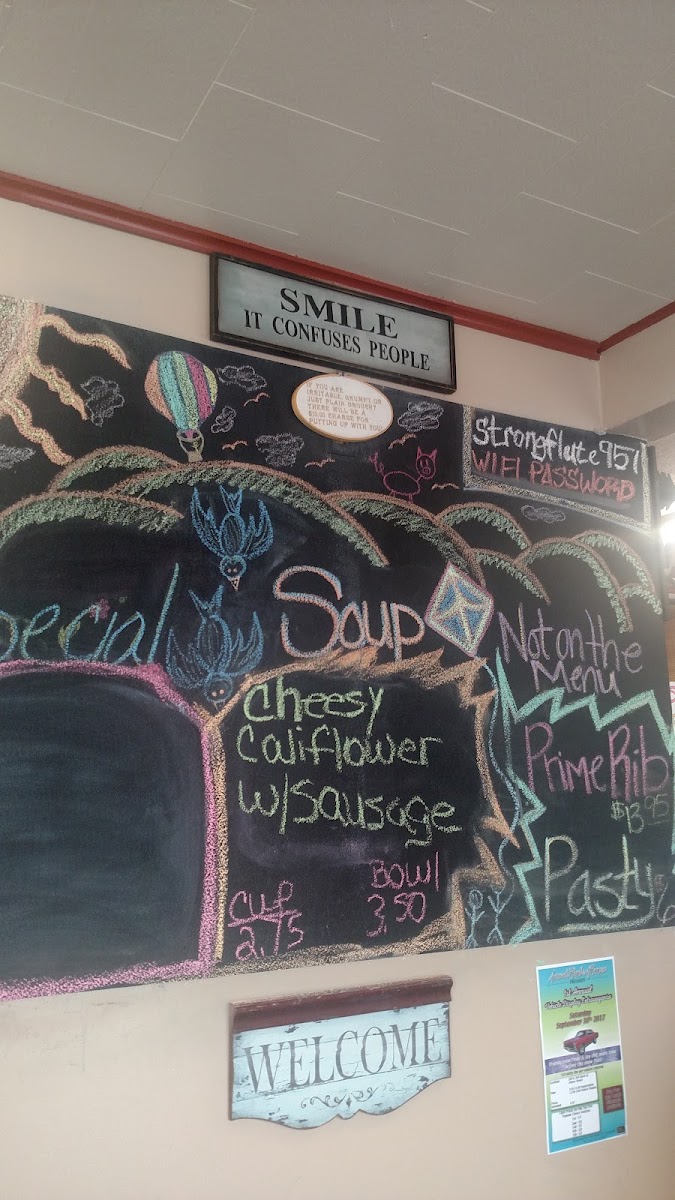 SMILE
IT CONFUSES PEOPLE
IF YOU ARE
IRRITABLE, GRUMPY OR
JUST PLAIN ORNERY
THERE WILL BE A
$10.00 CHARGE FOR
PUTTING UP WITH YOU!
strongflute957
WIFI PASSWORD
pecial
Soup
Cheesy
Califlower
w/Sausage
CUP
2.75
BOWl
3.50
Not on the
Menu
Prime Rib
$13.95
Pasty
WELCOME
1st Annual
Saturday
September 30th 2017